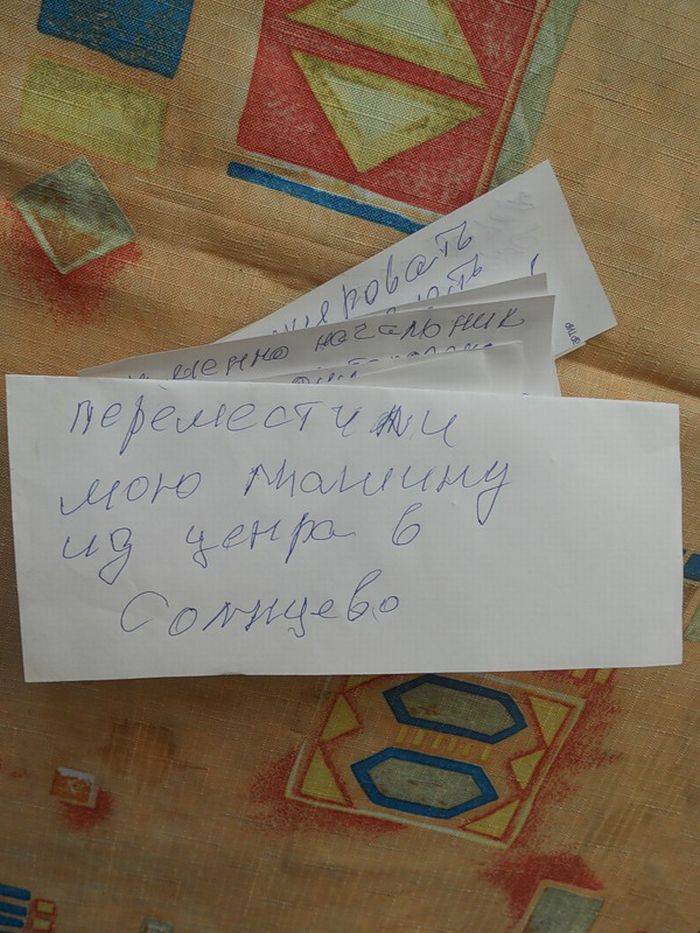 ировать
менно начальник
переместили
мою машину
из ценра в
Солнцево